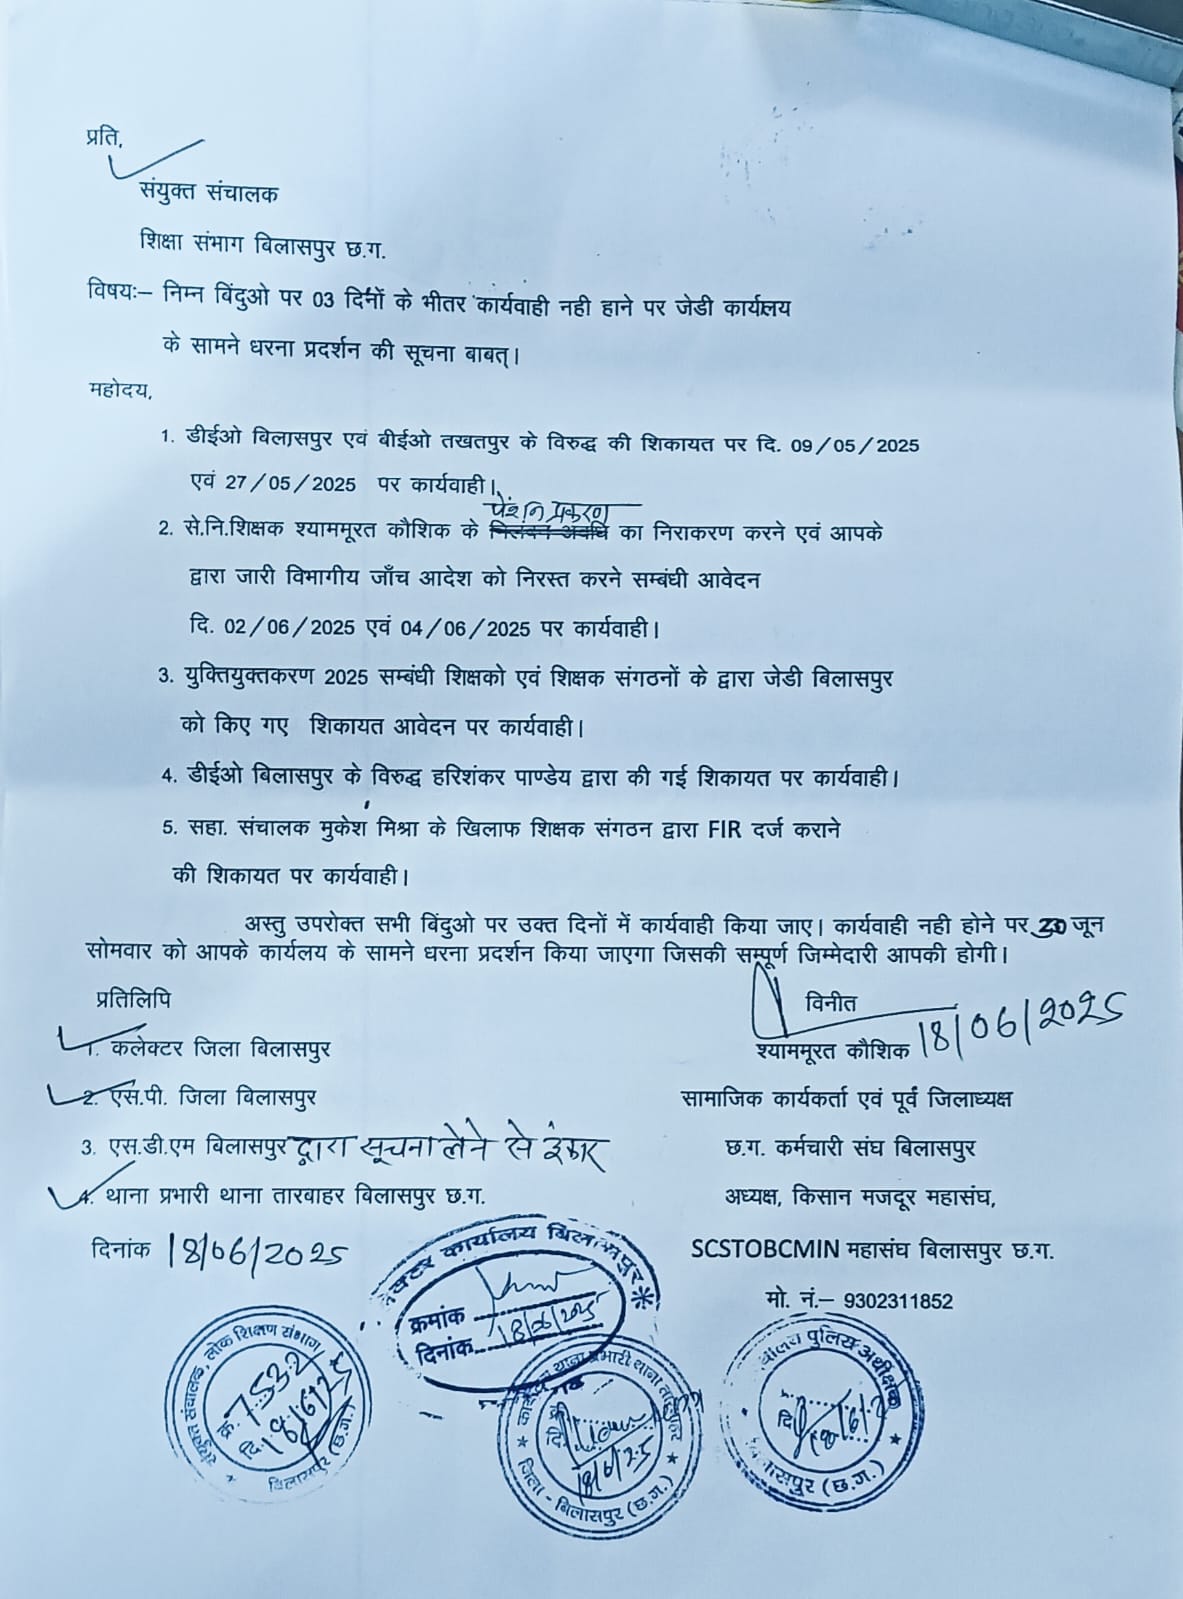 प्रति,
संयुक्त संचालक
शिक्षा संभाग बिलासपुर छ.ग.
विषयः– निम्न बिंदुओ पर 03 दिनों के भीतर कार्यवाही नही हाने पर जेडी कार्यलय
के सामने धरना प्रदर्शन की सूचना बाबत्।
महोदय,
1. डीईओ बिलासपुर एवं बीईओ तखतपुर के विरुद्ध की शिकायत पर दि. 09/05/2025
एवं 27/05/2025 पर कार्यवाही।
पेंशन प्रकरण
2. से.नि.शिक्षक श्याममूरत कौशिक के निलंबन अवधि का निराकरण करने एवं आपके
द्वारा जारी विभागीय जाँच आदेश को निरस्त करने सम्बंधी आवेदन
दि. 02/06/2025 एवं 04/06/2025 पर कार्यवाही।
3. युक्तियुक्तकरण 2025 सम्बंधी शिक्षको एवं शिक्षक संगठनों के द्वारा जेडी बिलासपुर
को किए गए शिकायत आवेदन पर कार्यवाही।
4. डीईओ बिलासपुर के विरुद्ध हरिशंकर पाण्डेय द्वारा की गई शिकायत पर कार्यवाही।
5. सहा. संचालक मुकेश मिश्रा के खिलाफ शिक्षक संगठन द्वारा FIR दर्ज कराने
की शिकायत पर कार्यवाही।
अस्तु उपरोक्त सभी बिंदुओ पर उक्त दिनों में कार्यवाही किया जाए। कार्यवाही नही होने पर 30 जून
सोमवार को आपके कार्यलय के सामने धरना प्रदर्शन किया जाएगा जिसकी सम्पूर्ण जिम्मेदारी आपकी होगी।
प्रतिलिपि
विनीत
1. कलेक्टर जिला बिलासपुर
श्याममूरत कौशिक 18/06/2025
2. एस.पी. जिला बिलासपुर
सामाजिक कार्यकर्ता एवं पूर्व जिलाध्यक्ष
3. एस.डी.एम बिलासपुर द्वारा सूचना लेने से इंकार
छ.ग. कर्मचारी संघ बिलासपुर
4. थाना प्रभारी थाना तारबाहर बिलासपुर छ.ग.
अध्यक्ष, किसान मजदूर महासंघ,
दिनांक 18/06/2025
SCSTOBCMIN महासंघ बिलासपुर छ.ग.
मो. नं.– 9302311852
कार्यालय बिलासपुर
क्रमांक
दिनांक 18/06/2025
संयुक्त संचालक, लोक शिक्षण संभाग
क्र. 7532
बिलासपुर (छ.ग.)
थाना प्रभारी थाना
18/6/25
जिला - बिलासपुर (छ.ग.)
पुलिस अधीक्षक
दि.
(छ.ग.)